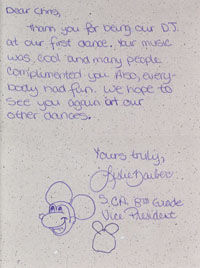 Dear Chris,
Thank you for being our D.J.
at our first dance. Your music
was cool and many people
complimented you. Also, every-
body had fun. We hope to
see you again at our
other dances.
Yours truly,
S.C.A. 8th Grade
Vice President